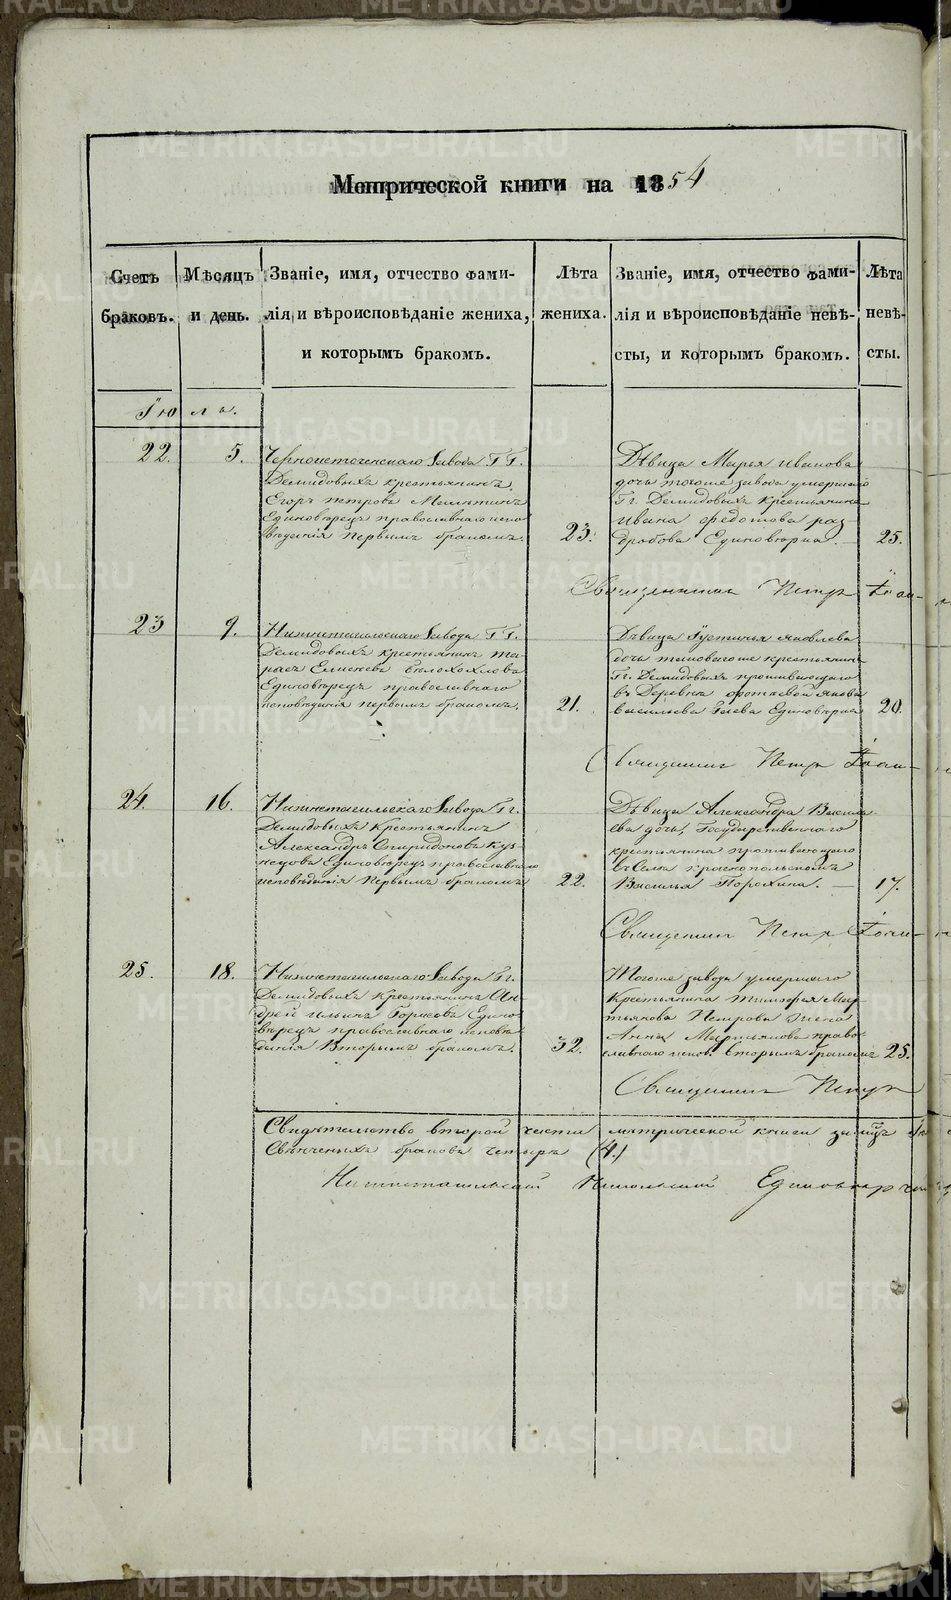 Метрической книги на 1854
Счетъ браковъ.
Мѣсяцъ и день.
Званіе, имя, отчество фами-
лія и вѣроисповѣданіе жениха,
и которымъ бракомъ.
Лѣта жениха.
Званіе, имя, отчество фами-
лія и вѣроисповѣданіе невѣ-
сты, и которымъ бракомъ.
Лѣта невѣ-
сты.
Іюль.
22. 5.
Черноисточенскаго Завода ГГ.
Демидовыхъ крестьянинъ
Егоръ Петровъ
Единовѣрецъ православнаго испо-
вѣданія первымъ бракомъ.
23.
Дѣвица Марья Иванова
дочь тогоже завода умершаго
Гг. Демидовыхъ крестьянина
Ивана Федотова Раз-
дробова Единовѣрка.
25.
Священникъ Петръ Іоан-
23 9.
Нижнетагильскаго Завода ГГ.
Демидовыхъ крестьянинъ Та-
расъ Бѣлохохловъ
Единовѣрецъ православнаго
исповѣданія первымъ бракомъ.
21.
Дѣвица Густинья Яковлева
дочь таковагоже крестьянина
Гг. Демидовыхъ проживающаго
въ Деревнѣ Якова
Васильева Гаева Единовѣрка
20.
Священникъ Петръ Іоан-
24. 16.
Нижнетагильскаго Завода Гг.
Демидовыхъ Крестьянинъ
Александръ Спиридоновъ Куз-
нецовъ Единовѣрецъ православнаго
исповѣданія первымъ бракомъ
22.
Дѣвица Александра Василь-
ева дочь, Государственнаго
крестьянина проживающаго
въ Селѣ Краснопольскомъ
Василья Порохина.
17.
Священникъ Петръ Іоан-
25. 18.
Нижнетагильскаго Завода Гг.
Демидовыхъ крестьянинъ Ан-
дрей Ильинъ Едино-
вѣрецъ православнаго исповѣ-
данія Вторымъ бракомъ.
32.
Тогоже завода умершаго
Крестьянина Тимофея Мар-
тьянова Петрова Жена
Анна Мартьянова право-
славнаго испов. вторымъ бракомъ
25.
Священникъ Петръ
Свидѣтельство второй части метрической книги
браковъ четыре (4.)
Нижнетагильской Никольской
METRIKI.GASO-URAL.RU